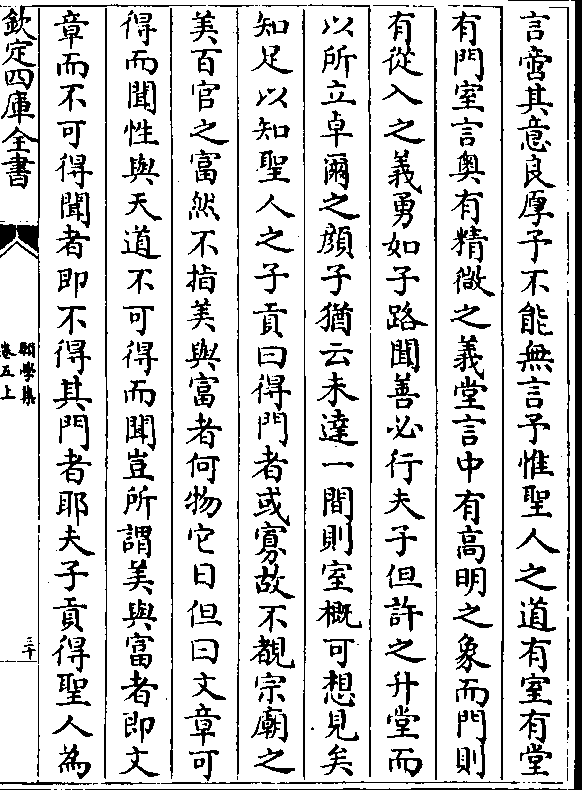 言啻其意良厚予不能無言予惟聖人之道有室有堂
有門室言奥有精微之義堂言中有高明之象而門則
有從入之義勇如子路聞善必行夫子但許之升堂而
以所立卓爾之顔子猶云未達一間則室槪可想見矣
知足以知聖人之子貢曰得門者或寡故不覩宗廟之
美百官之富然不指美與富者何物它日但曰文章可
得而聞性與天道不可得而聞豈所謂美與富者即文
章而不可得聞者即不得其門者耶夫子貢得聖人為
欽定四庫全書
願學集
卷五上
三十